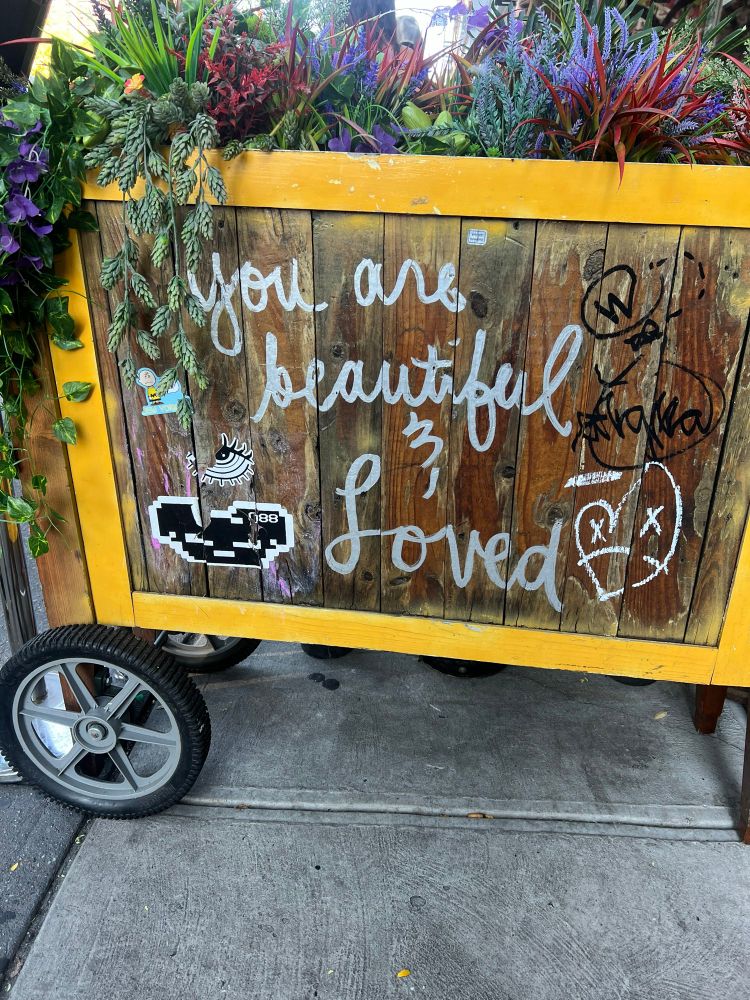 you are
beautiful
&
Loved
W
088